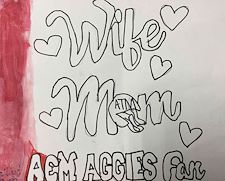 Wife
Mom
A&M AGGIES Fan